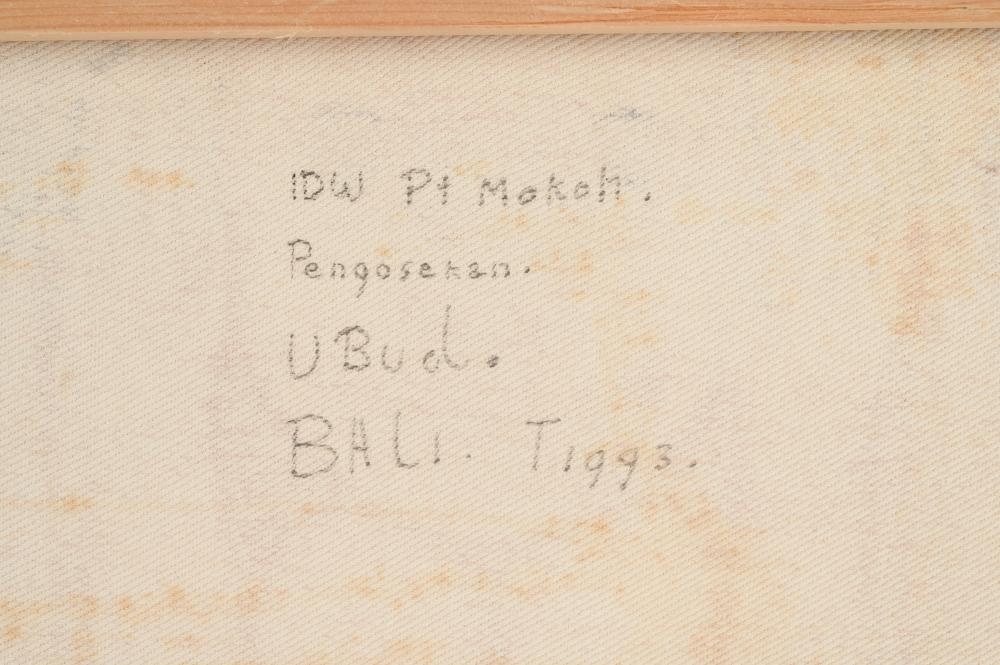 IDW Pt Mokoh.
Pengosekan.
UBud.
BALI. T1993.